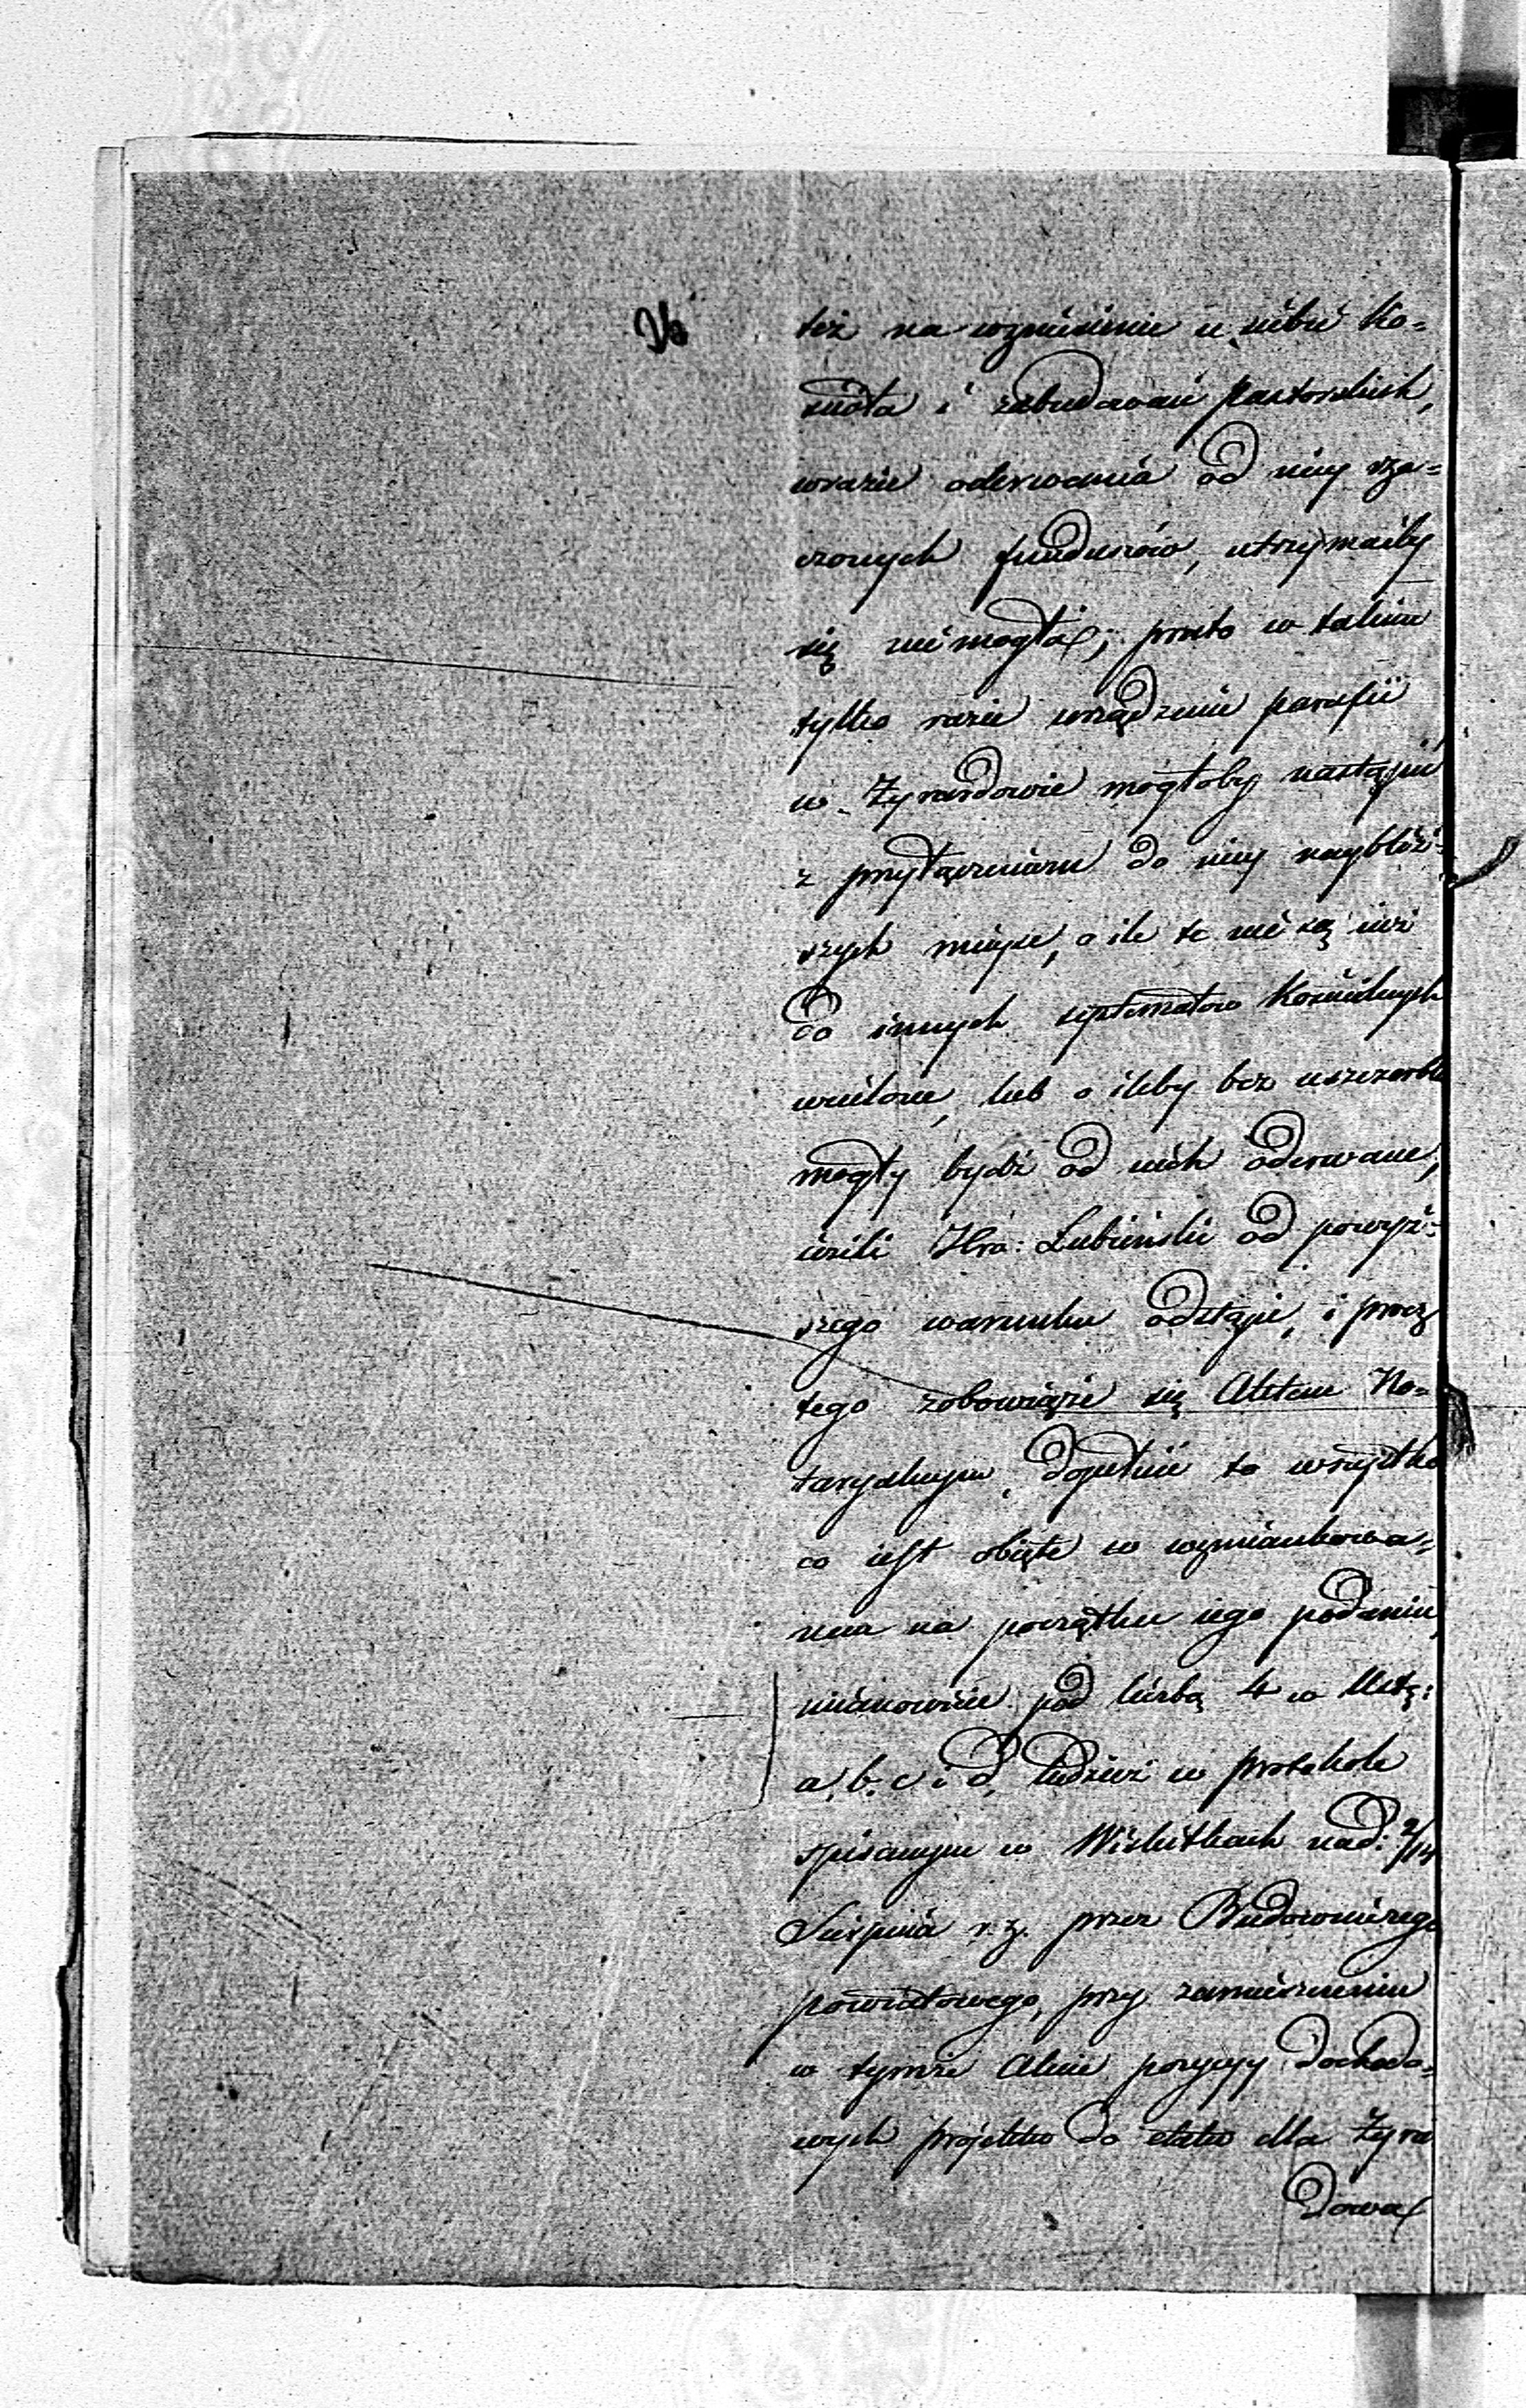 też na wzniesienie u siebie Ko=
sciöła i zabudowań pastorskich,
wrazie oderwania od niey rze=
czonych funduszów, utrzymaćby
się niemogła; przeto w takim
tylko razie urządzenie parafii
w Żyrardowie mogłoby nastąpić
z przyłączeniem do niey naybliż=
szych mieysc, o ile te nie są iuż
do innych systematów Kościelnych
wcielone, lub o ileby bez uszczerbku
mogły bydź od nich oderwane,
ieżeli Hra: Lubieński od powyż=
szego warunku odstąpi, i procz
tego zobowiąże się Aktem No=
taryalnym, dopełnić to wszystko
co iest obięte w wzmiankowa=
nem na początku iego podaniu,
mianowicie pod liczbą 4 w
a, b, c i d, tudzież w protokole
spisanym w Wiskitkach nad: 2/14
Sierpnia r. z. przez Budowniczego
powiatowego, przy zamieszczeniu
w tymże Akcie pozycyy docho­do=
wych projektu do etatu dla Żyrar
dowa